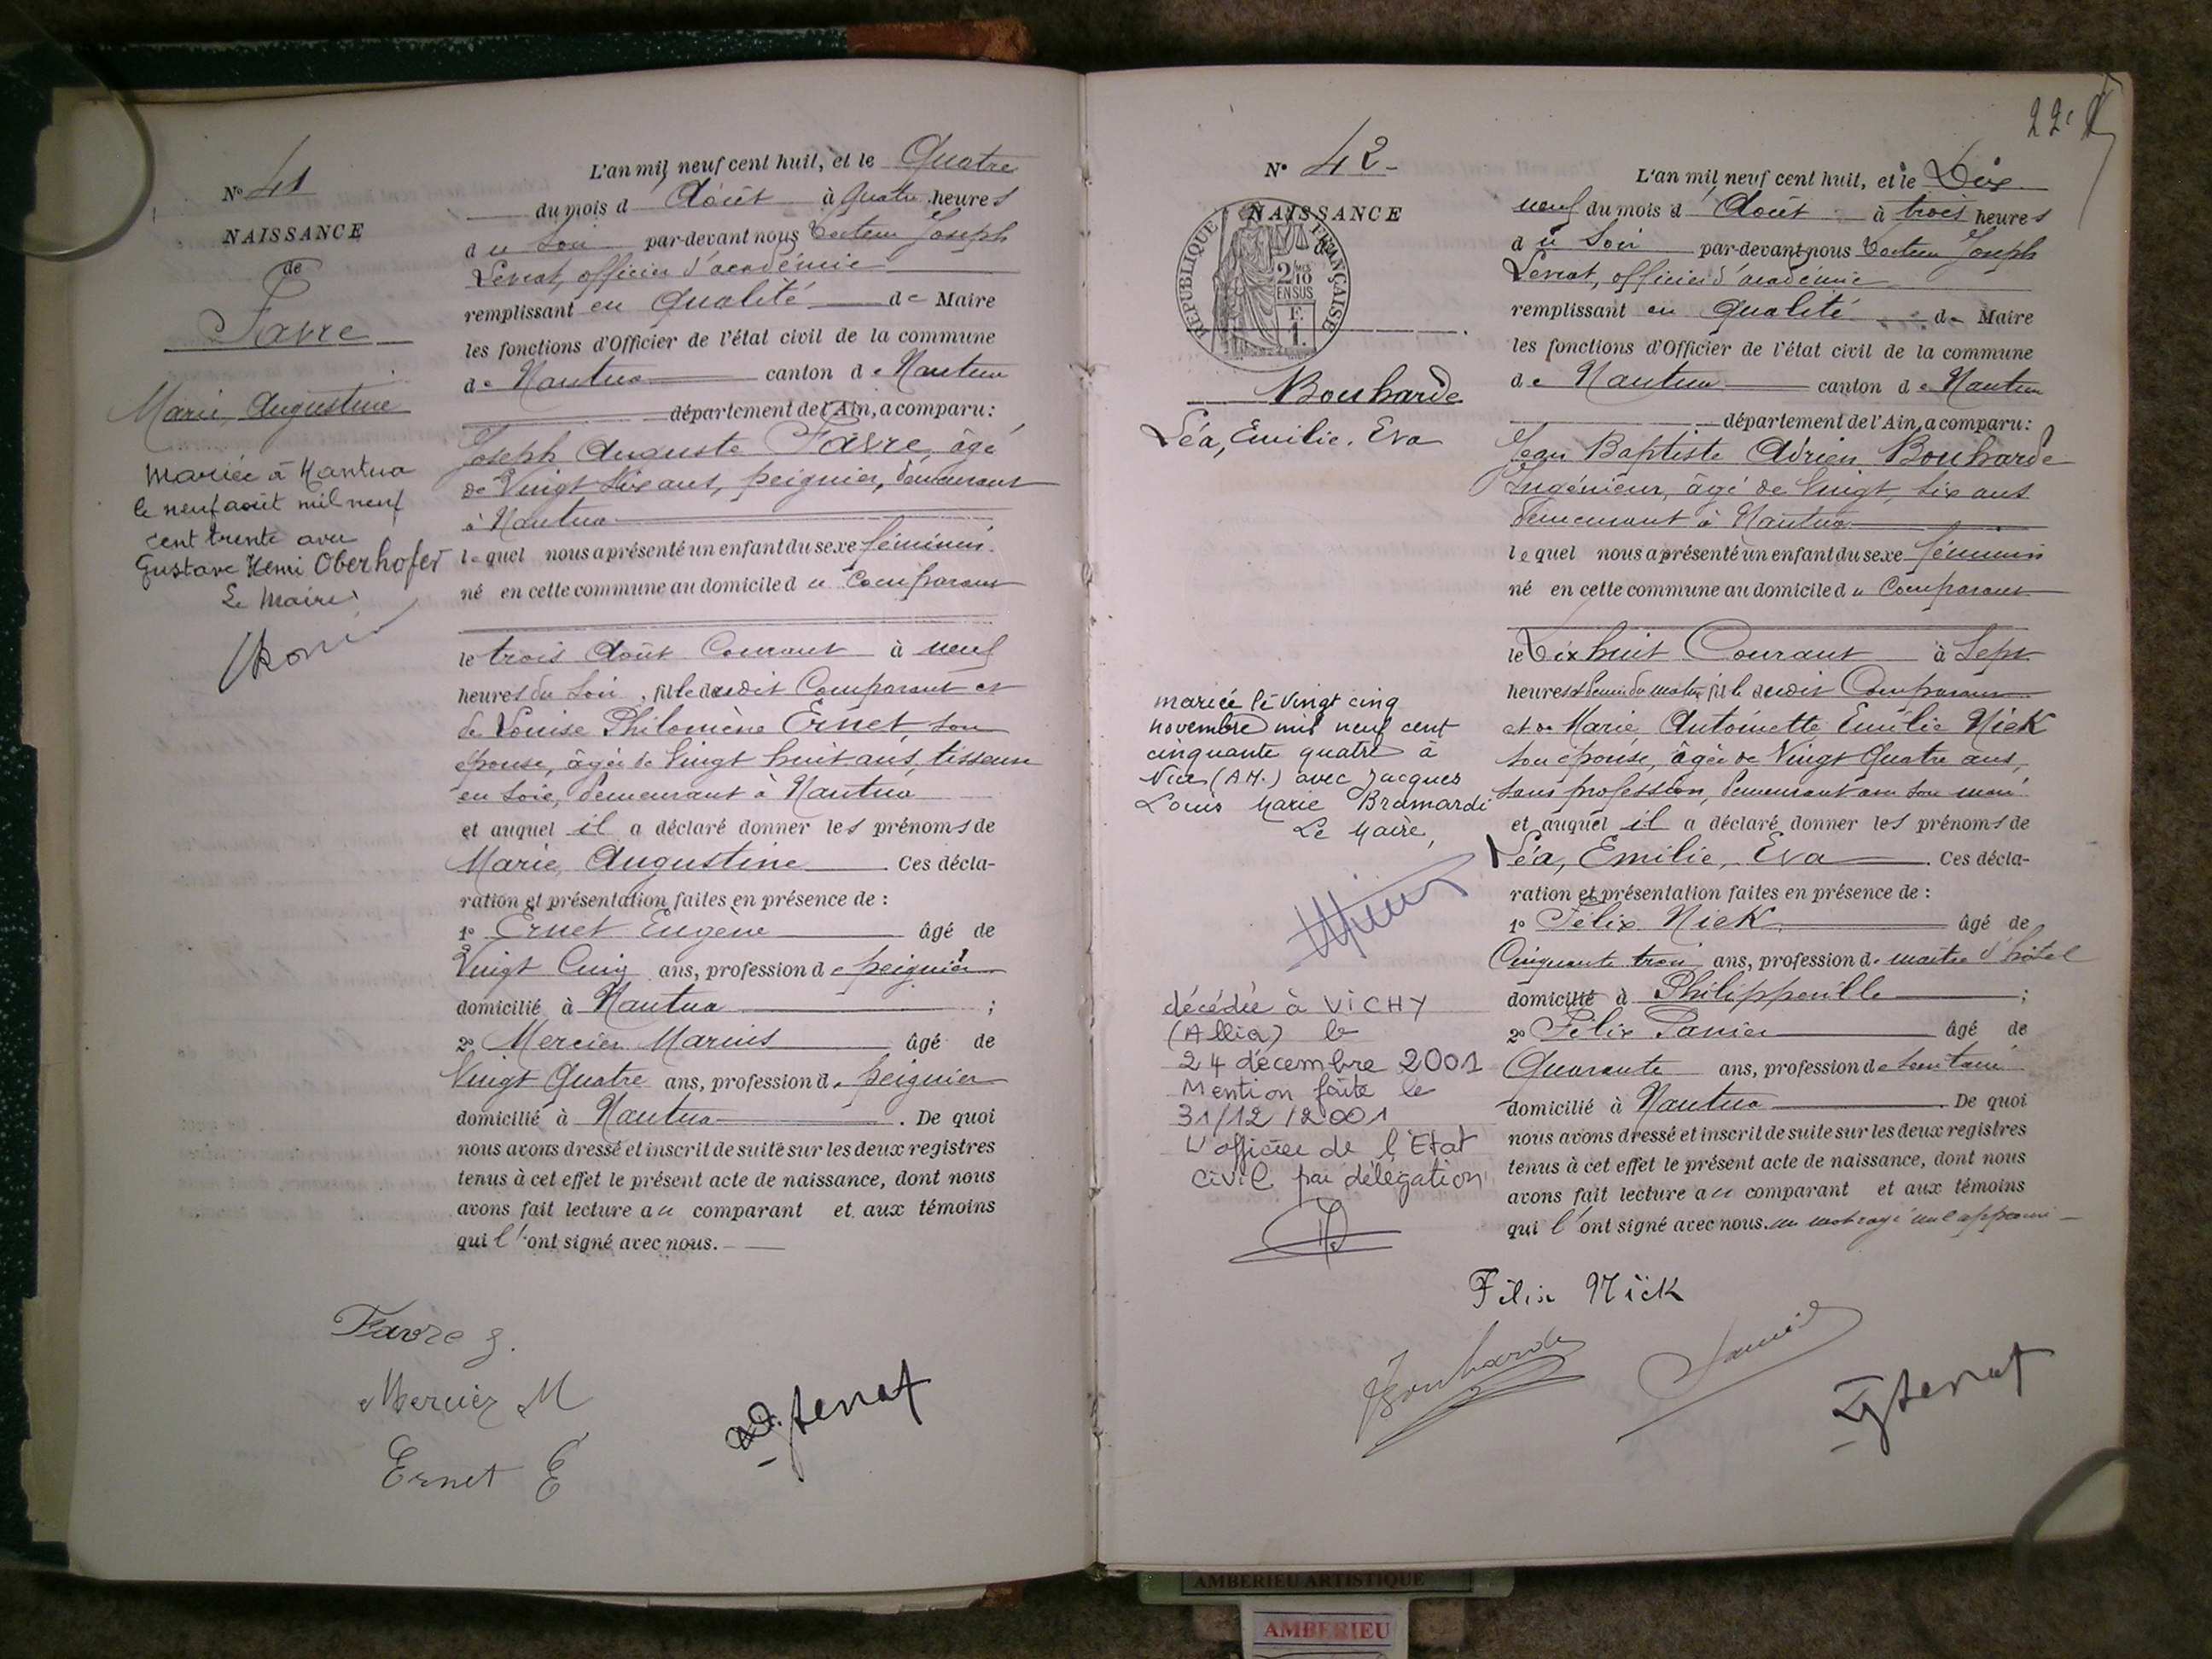 N° 41
NAISSANCE
de
Favre
Marie Augustine
mariée à Nantua
le neuf août mil neuf
cent trente avec
Gustave Henri Oberhofer
Le Maire
L'an mil neuf cent huit, et le Quatre
du mois d'Août à quatre heures
du soir par-devant nous Docteur Joseph
Levrat, officier d'académie
remplissant en qualité de Maire
les fonctions d'Officier de l'état civil de la commune
de Nantua canton de Nantua
département de l'Ain, a comparu :
Joseph Auguste Favre, âgé
de Vingt six ans, peignier, demeurant
à Nantua
lequel nous a présenté un enfant du sexe féminin
né en cette commune au domicile du comparant
le trois Août Courant à neuf
heures du soir, fille dudit Comparant et
de Louise Philomène Ernet, son
épouse, âgée de Vingt huit ans, tisseuse
en soie, demeurant à Nantua
et auquel il a déclaré donner les prénoms de
Marie Augustine. Ces décla-
ration et présentation faites en présence de :
1° Ernet Eugène âgé de
Vingt Cinq ans, profession de peignier
domicilié à Nantua ;
2° Mercier Marius âgé de
Vingt Quatre ans, profession de peignier
domicilié à Nantua. De quoi
nous avons dressé et inscrit de suite sur les deux registres
tenus à cet effet le présent acte de naissance, dont nous
avons fait lecture au comparant et aux témoins
qui l'ont signé avec nous.
Favre J.
Mercier M
Ernet E
22
N° 42
NAISSANCE
de
RÉPUBLIQUE FRANÇAISE
2/10 EN SUS
F.
1.
Bouharde
Léa, Emilie, Eva
mariée le vingt cinq
novembre mil neuf cent
cinquante quatre à
Nice (A.M.) avec Jacques
Louis Marie Bramardi
Le Maire,
décédée à VICHY
(Allier) le
24 décembre 2001
Mention faite le
31/12/2001
L'officier de l'Etat
Civil par délégation
L'an mil neuf cent huit, et le Dix
neuf du mois d'Août à trois heures
du soir par-devant nous Docteur Joseph
Levrat, officier d'académie
remplissant en qualité de Maire
les fonctions d'Officier de l'état civil de la commune
de Nantua canton de Nantua
département de l'Ain, a comparu :
Jean Baptiste Adrien Bouharde
Ingénieur, âgé de Vingt six ans
demeurant à Nantua
lequel nous a présenté un enfant du sexe féminin
né en cette commune au domicile du Comparant
le Dix huit Courant à Sept
heures & demie du matin, fille dudit Comparant
et de Marie Antoinette Emilie Nick
son épouse, âgée de Vingt Quatre ans,
sans profession, demeurant avec son mari
et auquel il a déclaré donner les prénoms de
Léa, Emilie, Eva. Ces décla-
ration et présentation faites en présence de :
1° Félix Nick âgé de
Cinquante trois ans, profession de maître d'hôtel
domicilié à Philippeville ;
2° Félix Janier âgé de
Quarante ans, profession de secrétaire
domicilié à Nantua. De quoi
nous avons dressé et inscrit de suite sur les deux registres
tenus à cet effet le présent acte de naissance, dont nous
avons fait lecture au comparant et aux témoins
qui l'ont signé avec nous. un mot rayé nul approuvé
Félix Nick
Bouharde
Janier
AMBERIEU ARTISTIQUE
AMBERIEU